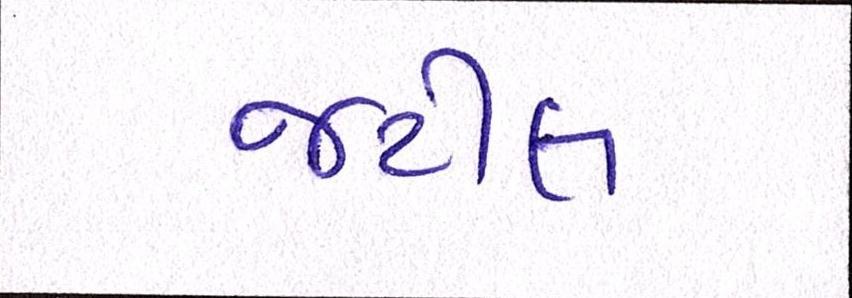 જટીલ